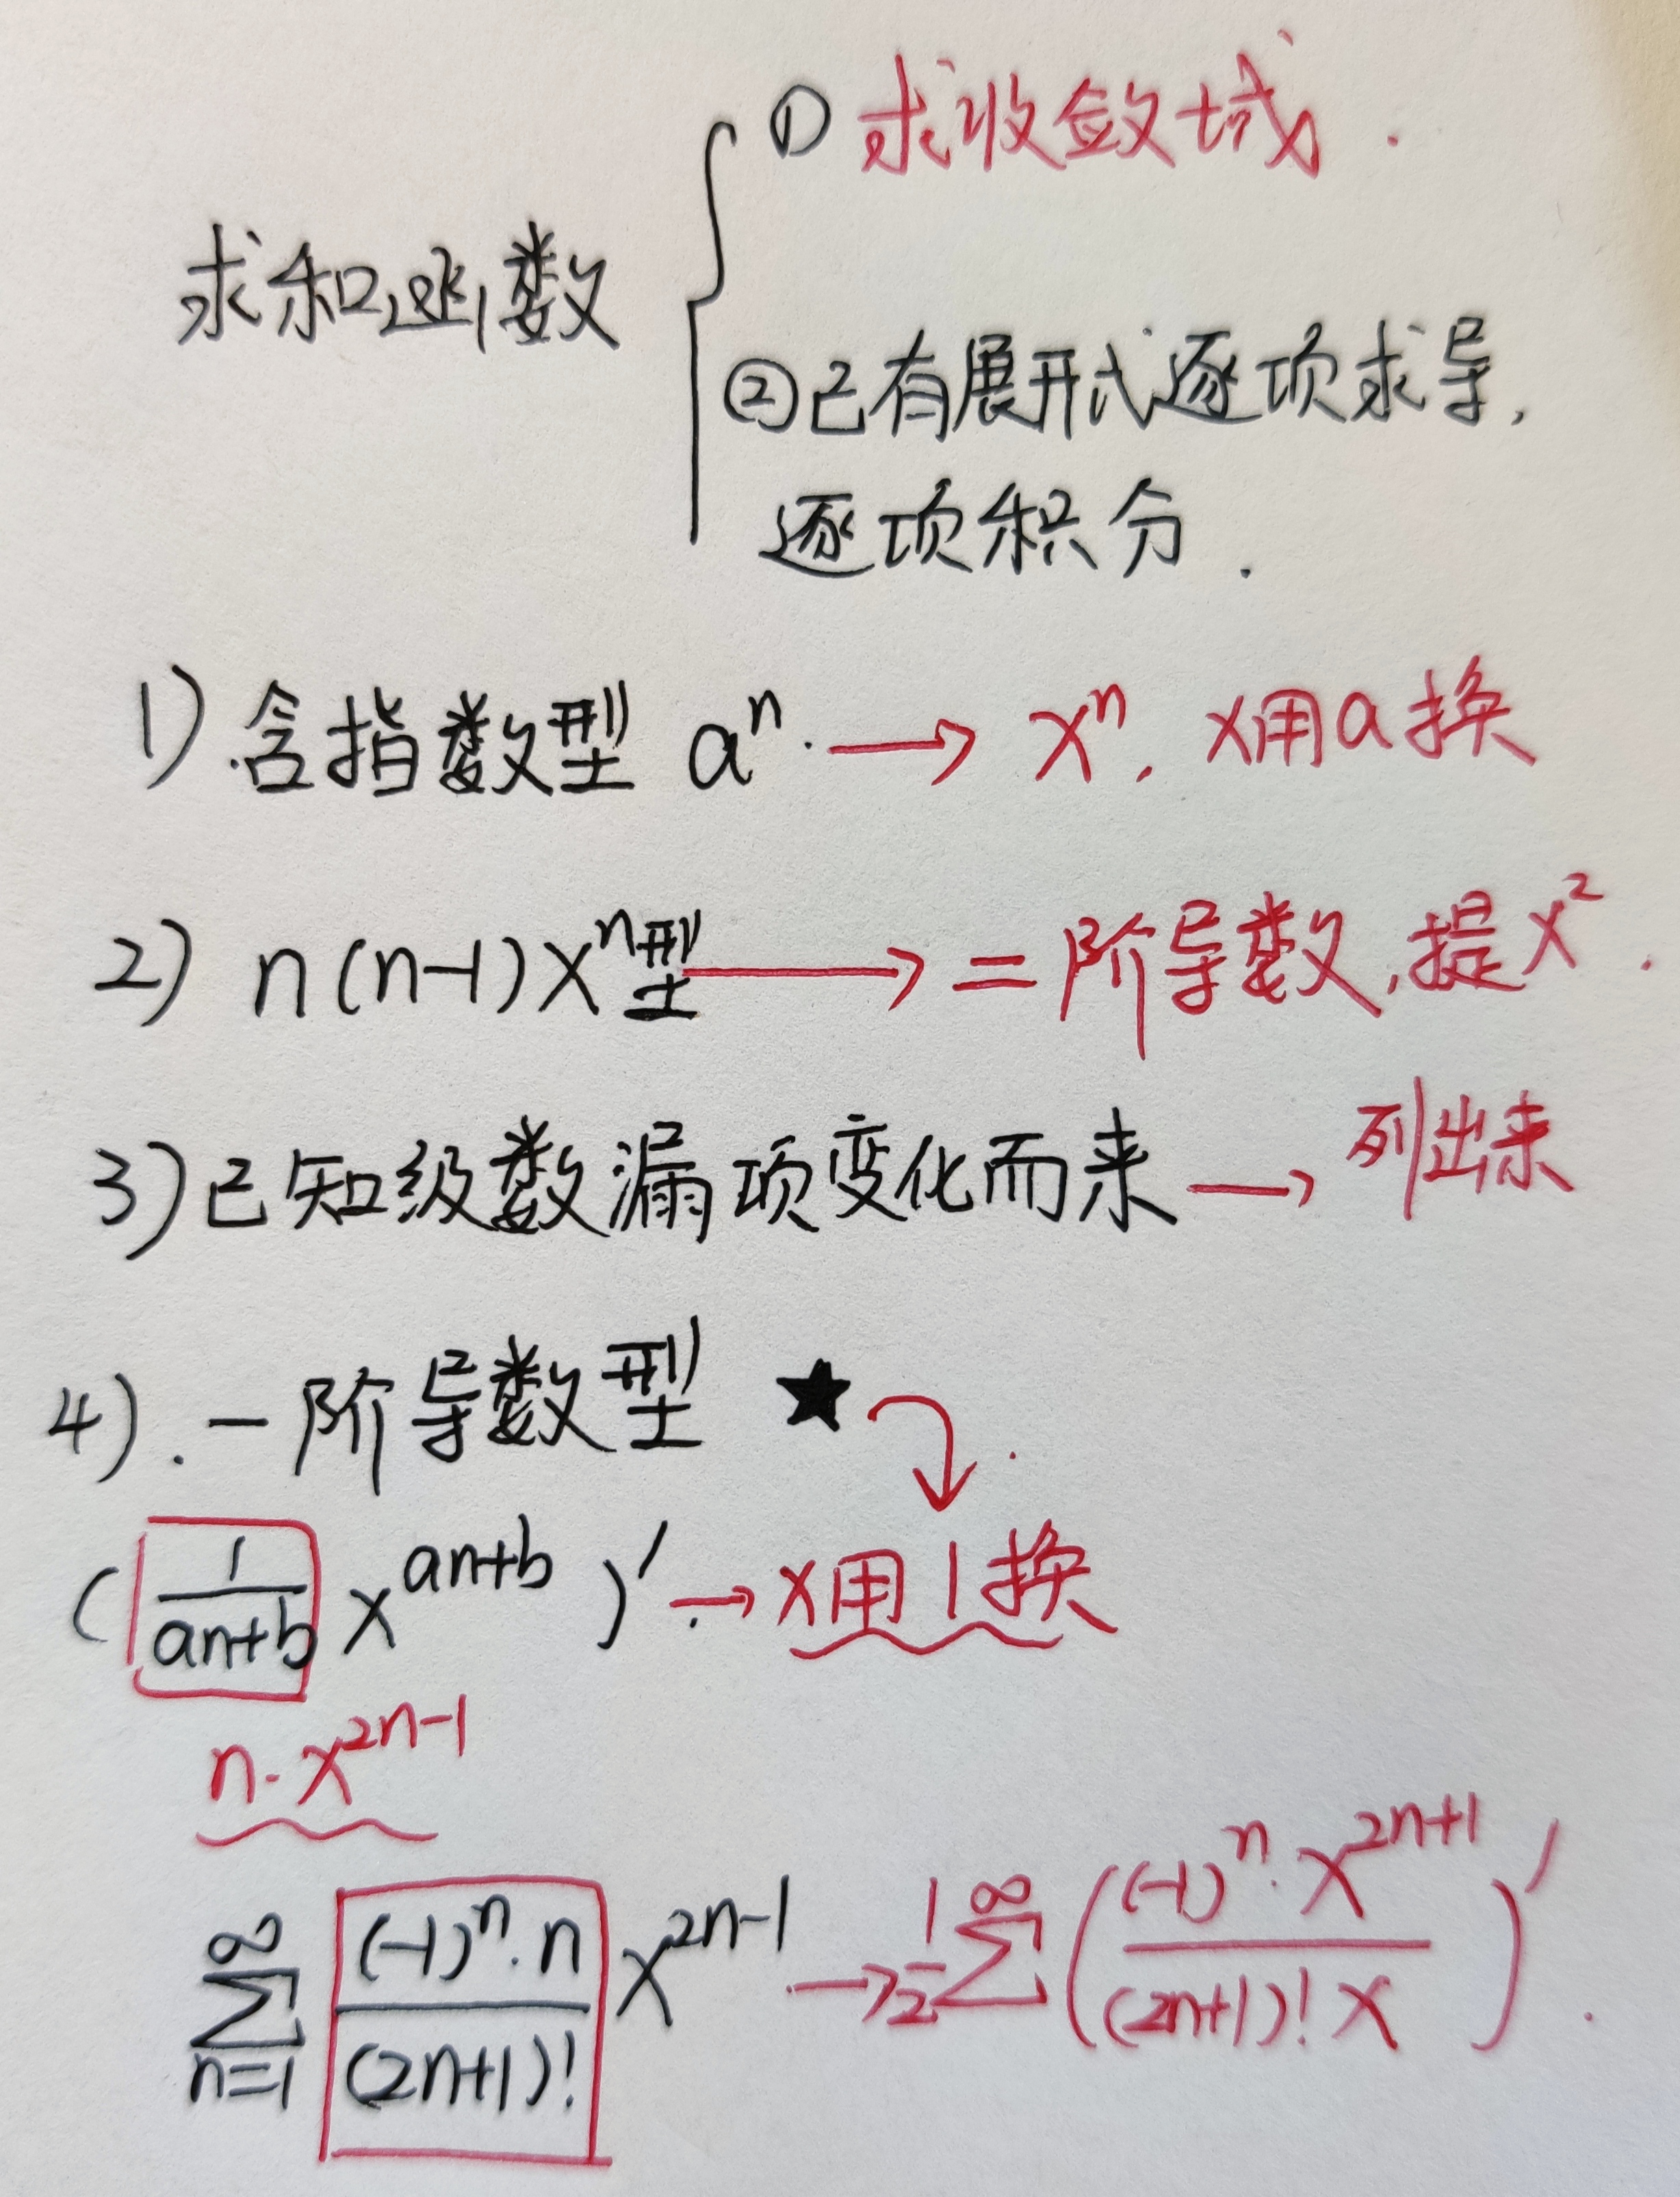 ① 求收敛域.
求和函数
②已有展开式逐项求导,
逐项积分.
1).含指数型 aⁿ. → xⁿ. x用a换
2) n(n-1)xⁿ型 → 二阶导数,提x².
3)已知级数漏项变化而来 → 列出来
4).一阶导数型 ★
(1/(an+b) x^(an+b))′ → x用1换
n·x^(2n-1)
∑_(n=1)^∞ ((-1)ⁿ·n)/((2n+1)!) x^(2n-1) → 1/2 ∑^∞ (((-1)ⁿ·x^(2n+1))/((2n+1)! x))′.